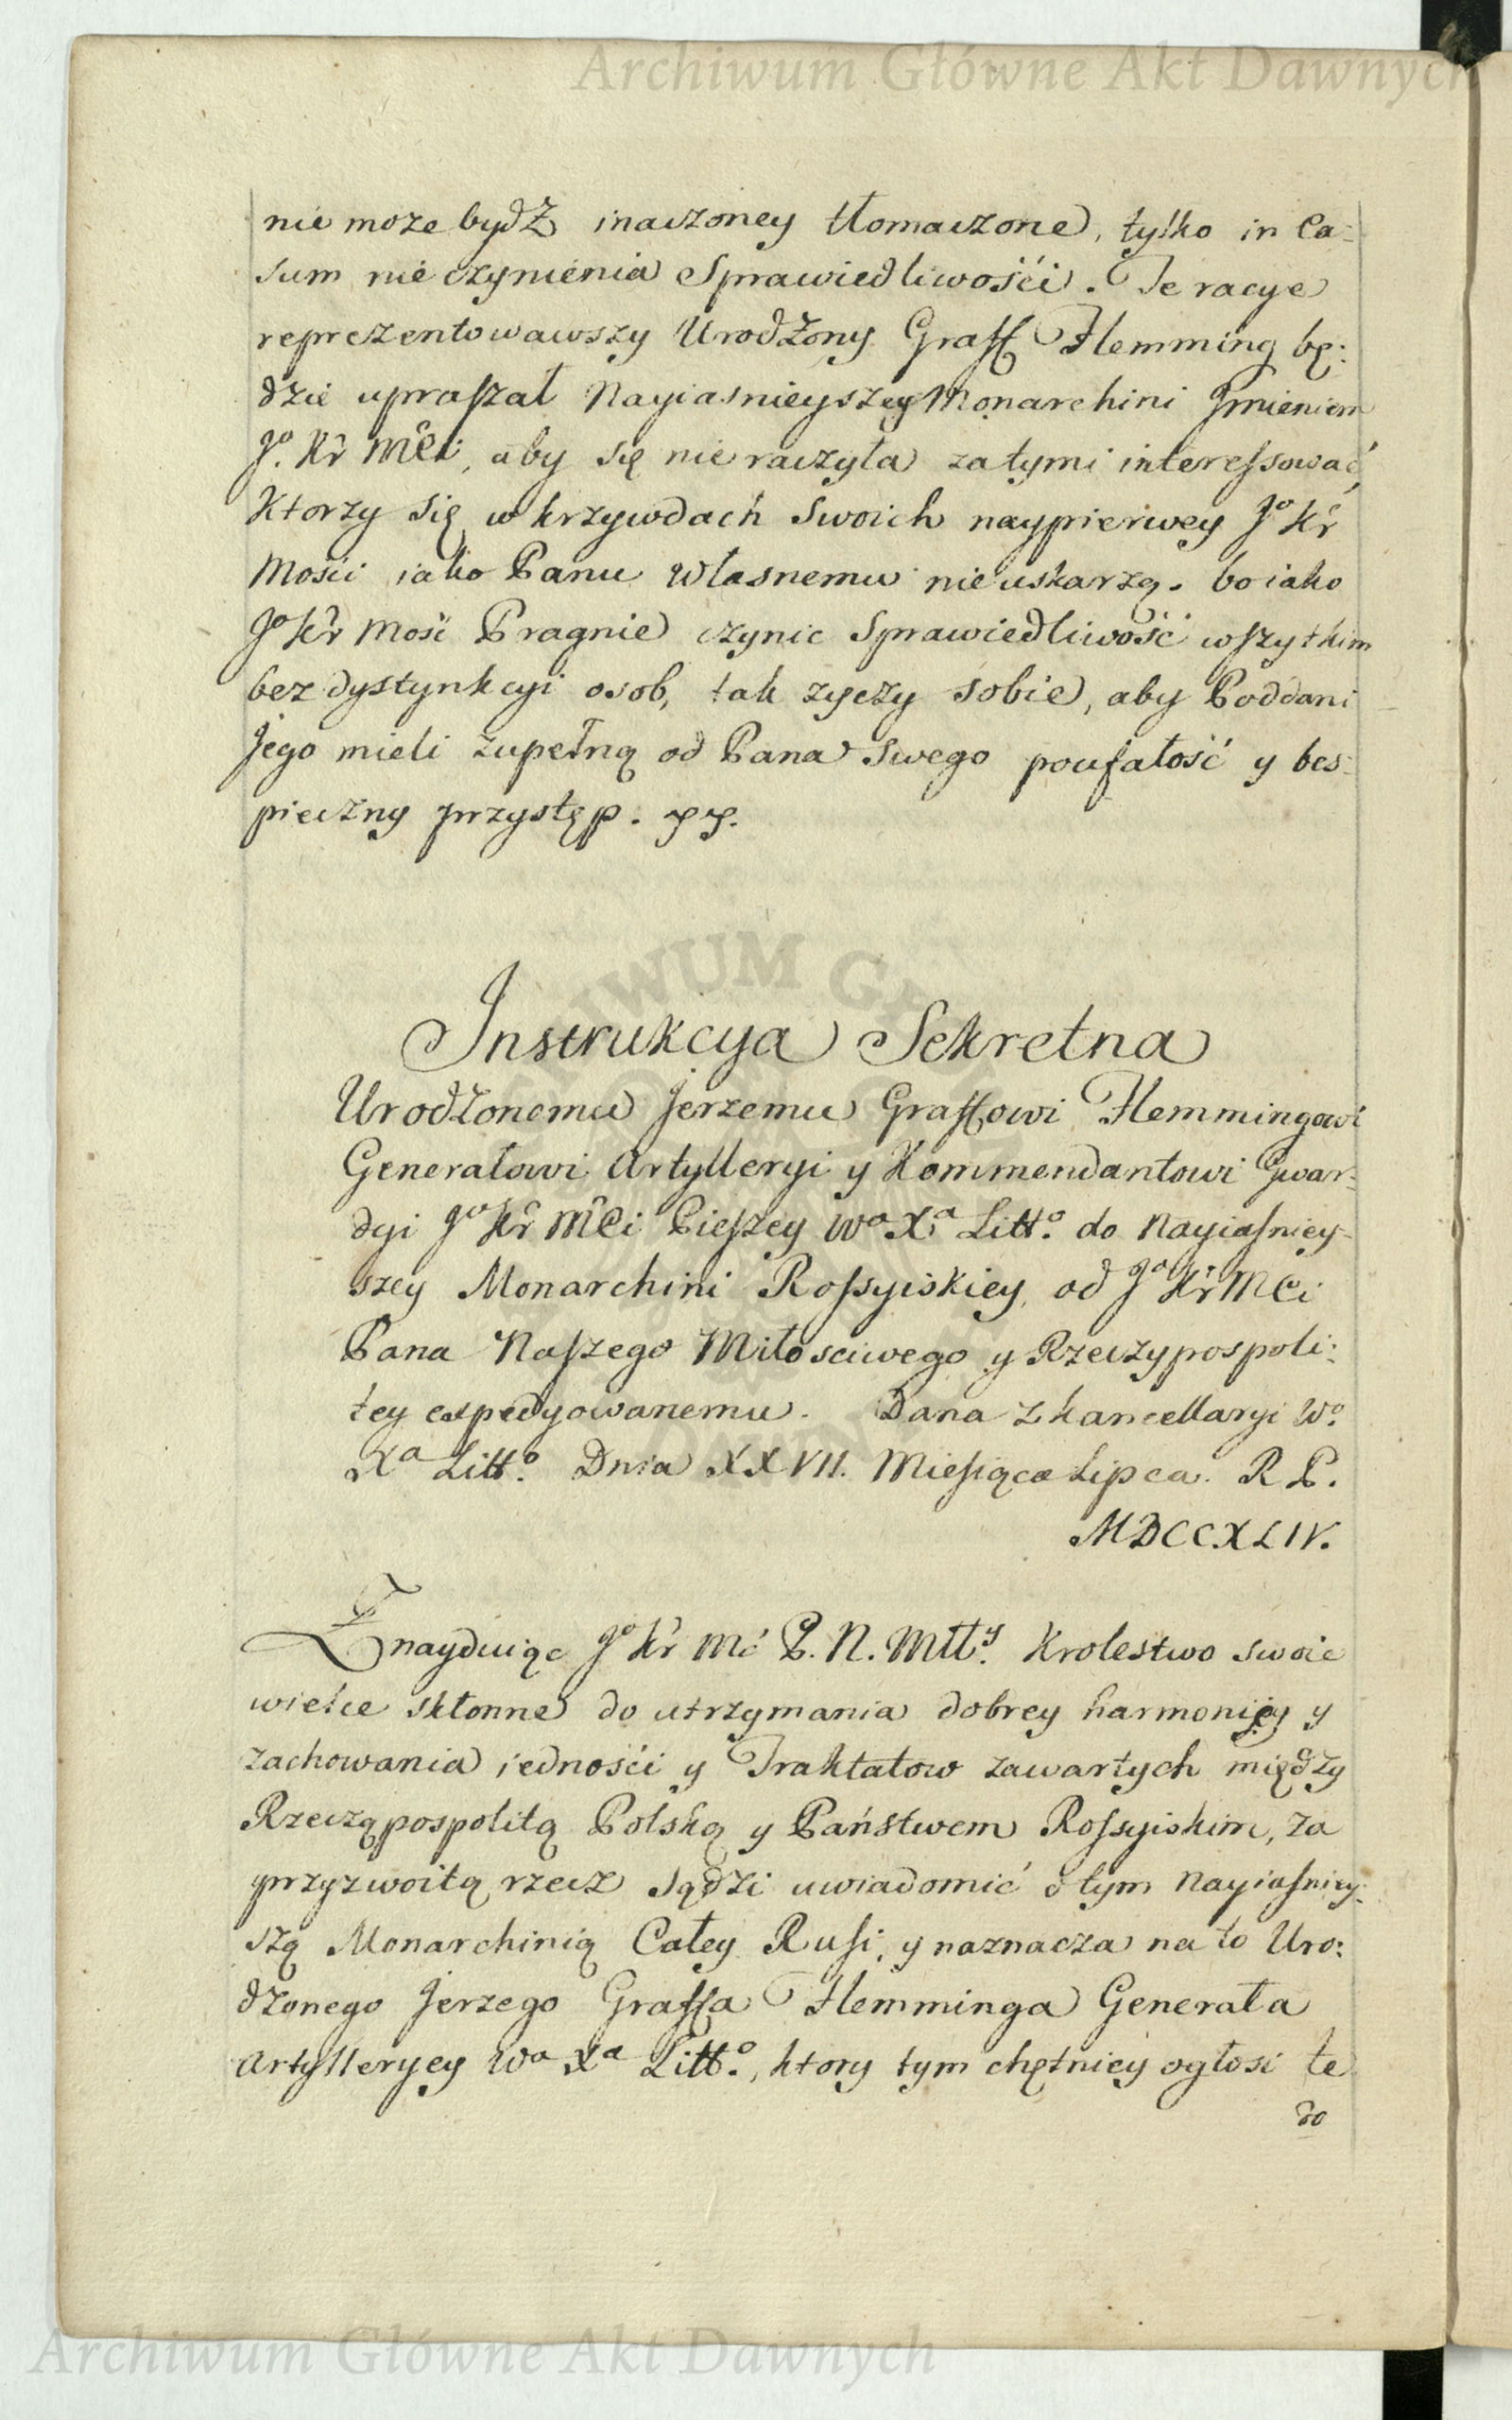 Archiwum Główne Akt Dawnych
nie moze bydź inaczoney tłomaczone, tylko in Ca=
sum nie czynienia Sprawiedliwośći. Te racye
reprezentowawszy Urodzony Graff Flemming bę:
dzie upraszał Nayiasnieyszey Monarchini Jmieniem
Jo. Kr Mci, aby się nie raczyła za tymi interessować,
Ktorzy się w krzywdach Swoich naypierwey Jo Kr
Mosci iako Panu Własnemu nie uskarzą. bo iako
Jo Kr Mosć Pragnie czynic Sprawiedliwość wszytkim
bez dystynkcyi osob, tak zyczy sobie, aby Poddani
Jego mieli zupełną od Pana Swego poufałość y bes=
pieczny przystęp. pp.
Instrukcya Sekretna
Urodzonemu Jerzemu Graffowi Flemmingowi
Generałowi Artylleryi y Kommendantowi Gwar=
dyi Jo Kr Mci Pieszey Wo Xa Litto. do Nayiasniey=
szey Monarchini Rossyiskiey, od Jo Kr Mci
Pana Naszego Miłosciwego y Rzeczypospoli:
tey expedyowanemu. Dana z kancellaryi Wo.
Xa Litto. Dnia XXVII. Miesiąca Lipca. R P.
MDCCXLIV.
Znayduiąc Jo Kr Mć P. N. Mtty. Krolestwo swoie
wielce skłonne do utrzymania dobrey harmonijey y
zachowania iednośći y Traktatow zawartych między
Rzecząpospolitą Polską y Państwem Rossyiskim, za
przyzwoitą rzecz sądzi uwiadomić o tym Nayiasniey=
szą Monarchinią Całey Rusi, y naznacza na to Uro:
dzonego Jerzego Graffa Flemminga Generała
Artylleryey Wo Xa Litto., ktory tym chętniey ogłosi te
do
Archiwum Główne Akt Dawnych